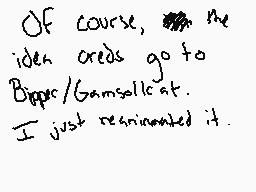 Of course, the
idea creds go to
Bipper/Gamsollcat.
I just reanimated it.